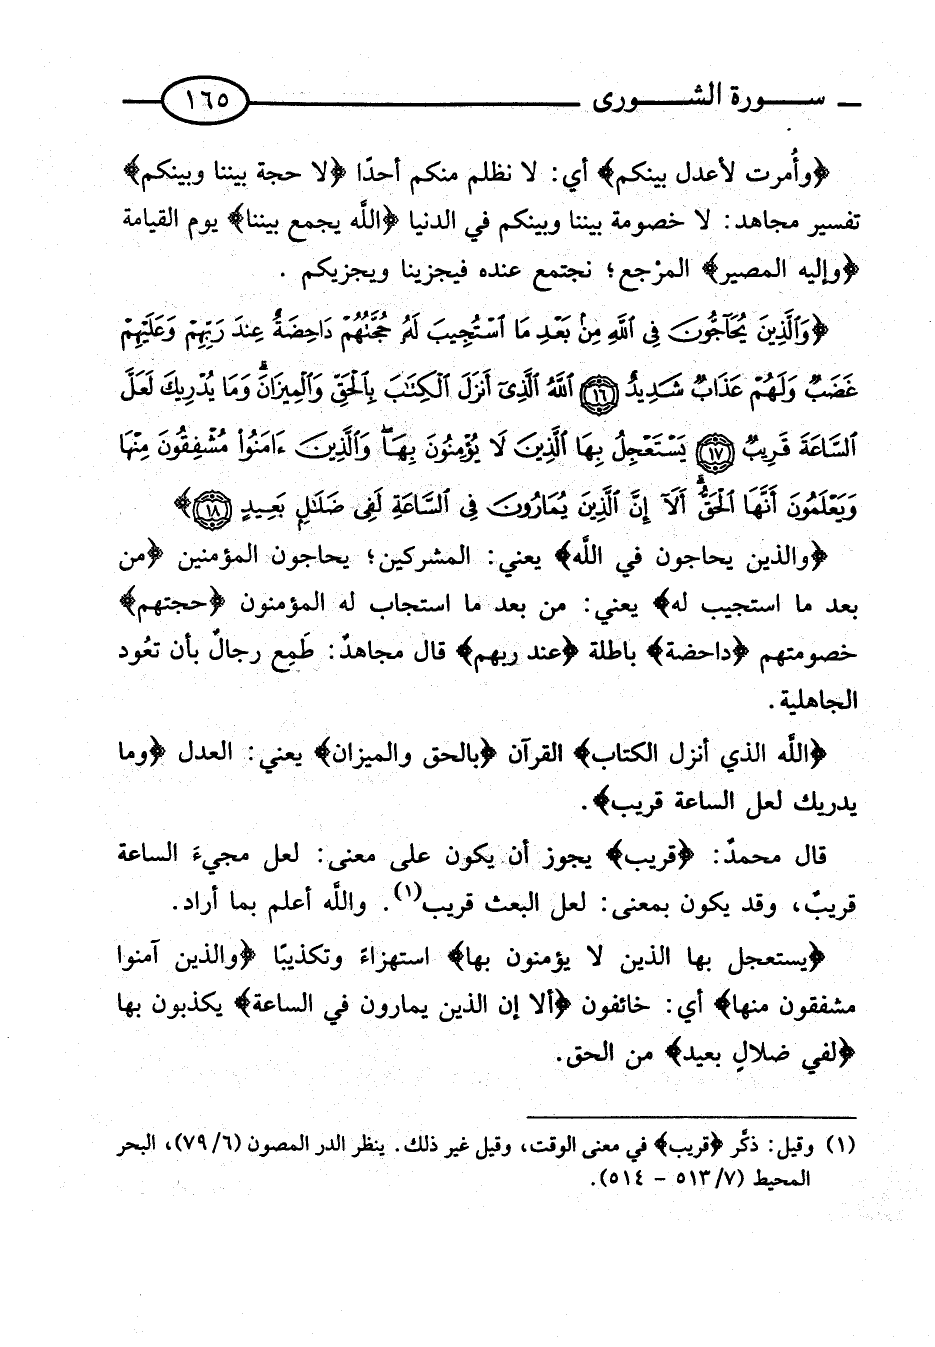 سورة الشورى ١٦٥
﴿وأُمرت لأعدل بينكم﴾ أي: لا نظلم منكم أحدًا ﴿لا حجة بيننا وبينكم﴾
تفسير مجاهد: لا خصومة بيننا وبينكم في الدنيا ﴿اللَّه يجمع بيننا﴾ يوم القيامة
﴿وإليه المصير﴾ المرْجع؛ نجتمع عنده فيجزينا ويجزيكم .
﴿وَٱلَّذِينَ يُحَآجُّونَ فِى ٱللَّهِ مِنۢ بَعۡدِ مَا ٱسۡتُجِيبَ لَهُۥ حُجَّتُهُمۡ دَاحِضَةٌ عِندَ رَبِّهِمۡ وَعَلَيۡهِمۡ
غَضَبٌ وَلَهُمۡ عَذَابٌ شَدِيدٌ ١٦ ٱللَّهُ ٱلَّذِىٓ أَنزَلَ ٱلۡكِتَٰبَ بِٱلۡحَقِّ وَٱلۡمِيزَانَۗ وَمَا يُدۡرِيكَ لَعَلَّ
ٱلسَّاعَةَ قَرِيبٌ ١٧ يَسۡتَعۡجِلُ بِهَا ٱلَّذِينَ لَا يُؤۡمِنُونَ بِهَاۖ وَٱلَّذِينَ ءَامَنُواْ مُشۡفِقُونَ مِنۡهَا
وَيَعۡلَمُونَ أَنَّهَا ٱلۡحَقُّۗ أَلَآ إِنَّ ٱلَّذِينَ يُمَارُونَ فِى ٱلسَّاعَةِ لَفِى ضَلَٰلٍۭ بَعِيدٍ ١٨﴾
﴿والذين يحاجون في اللَّه﴾ يعني: المشركين؛ يحاجون المؤمنين ﴿من
بعد ما استجيب له﴾ يعني: من بعد ما استجاب له المؤمنون ﴿حجتهم﴾
خصومتهم ﴿داحضة﴾ باطلة ﴿عند ربهم﴾ قال مجاهدٌ: طَمِع رجالٌ بأن تعُود
الجاهلية.
﴿اللَّه الذي أنزل الكتاب﴾ القرآن ﴿بالحق والميزان﴾ يعني: العدل ﴿وما
يدريك لعل الساعة قريب﴾.
قال محمدٌ: ﴿قريب﴾ يجوز أن يكون على معنى: لعل مجيءَ الساعة
قريبٌ، وقد يكون بمعنى: لعل البعث قريب(١). واللَّه أعلم بما أراد.
﴿يستعجل بها الذين لا يؤمنون بها﴾ استهزاءً وتكذيبًا ﴿والذين آمنوا
مشفقون منها﴾ أي: خائفون ﴿ألا إن الذين يمارون في الساعة﴾ يكذبون بها
﴿لفي ضلالٍ بعيد﴾ من الحق.
(١) وقيل: ذكَّر ﴿قريب﴾ في معنى الوقت، وقيل غير ذلك. ينظر الدر المصون (٧٩/٦)، البحر
المحيط (٥١٣/٧ - ٥١٤).